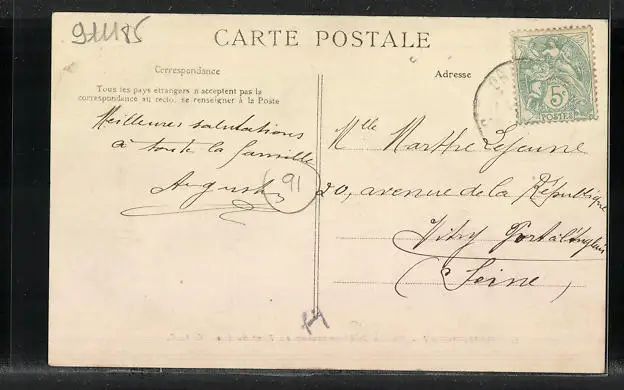 911185
CARTE POSTALE
Correspondance
Adresse
Tous les pays étrangers n'acceptent pas la
correspondance au recto, se renseigner à la Poste
5c
POSTES
Meilleures salutations
à toute la famille
August
91
Mlle Marthe Lejeune
20, avenue de la République
Vitry Port à l'Anglais
(Seine)